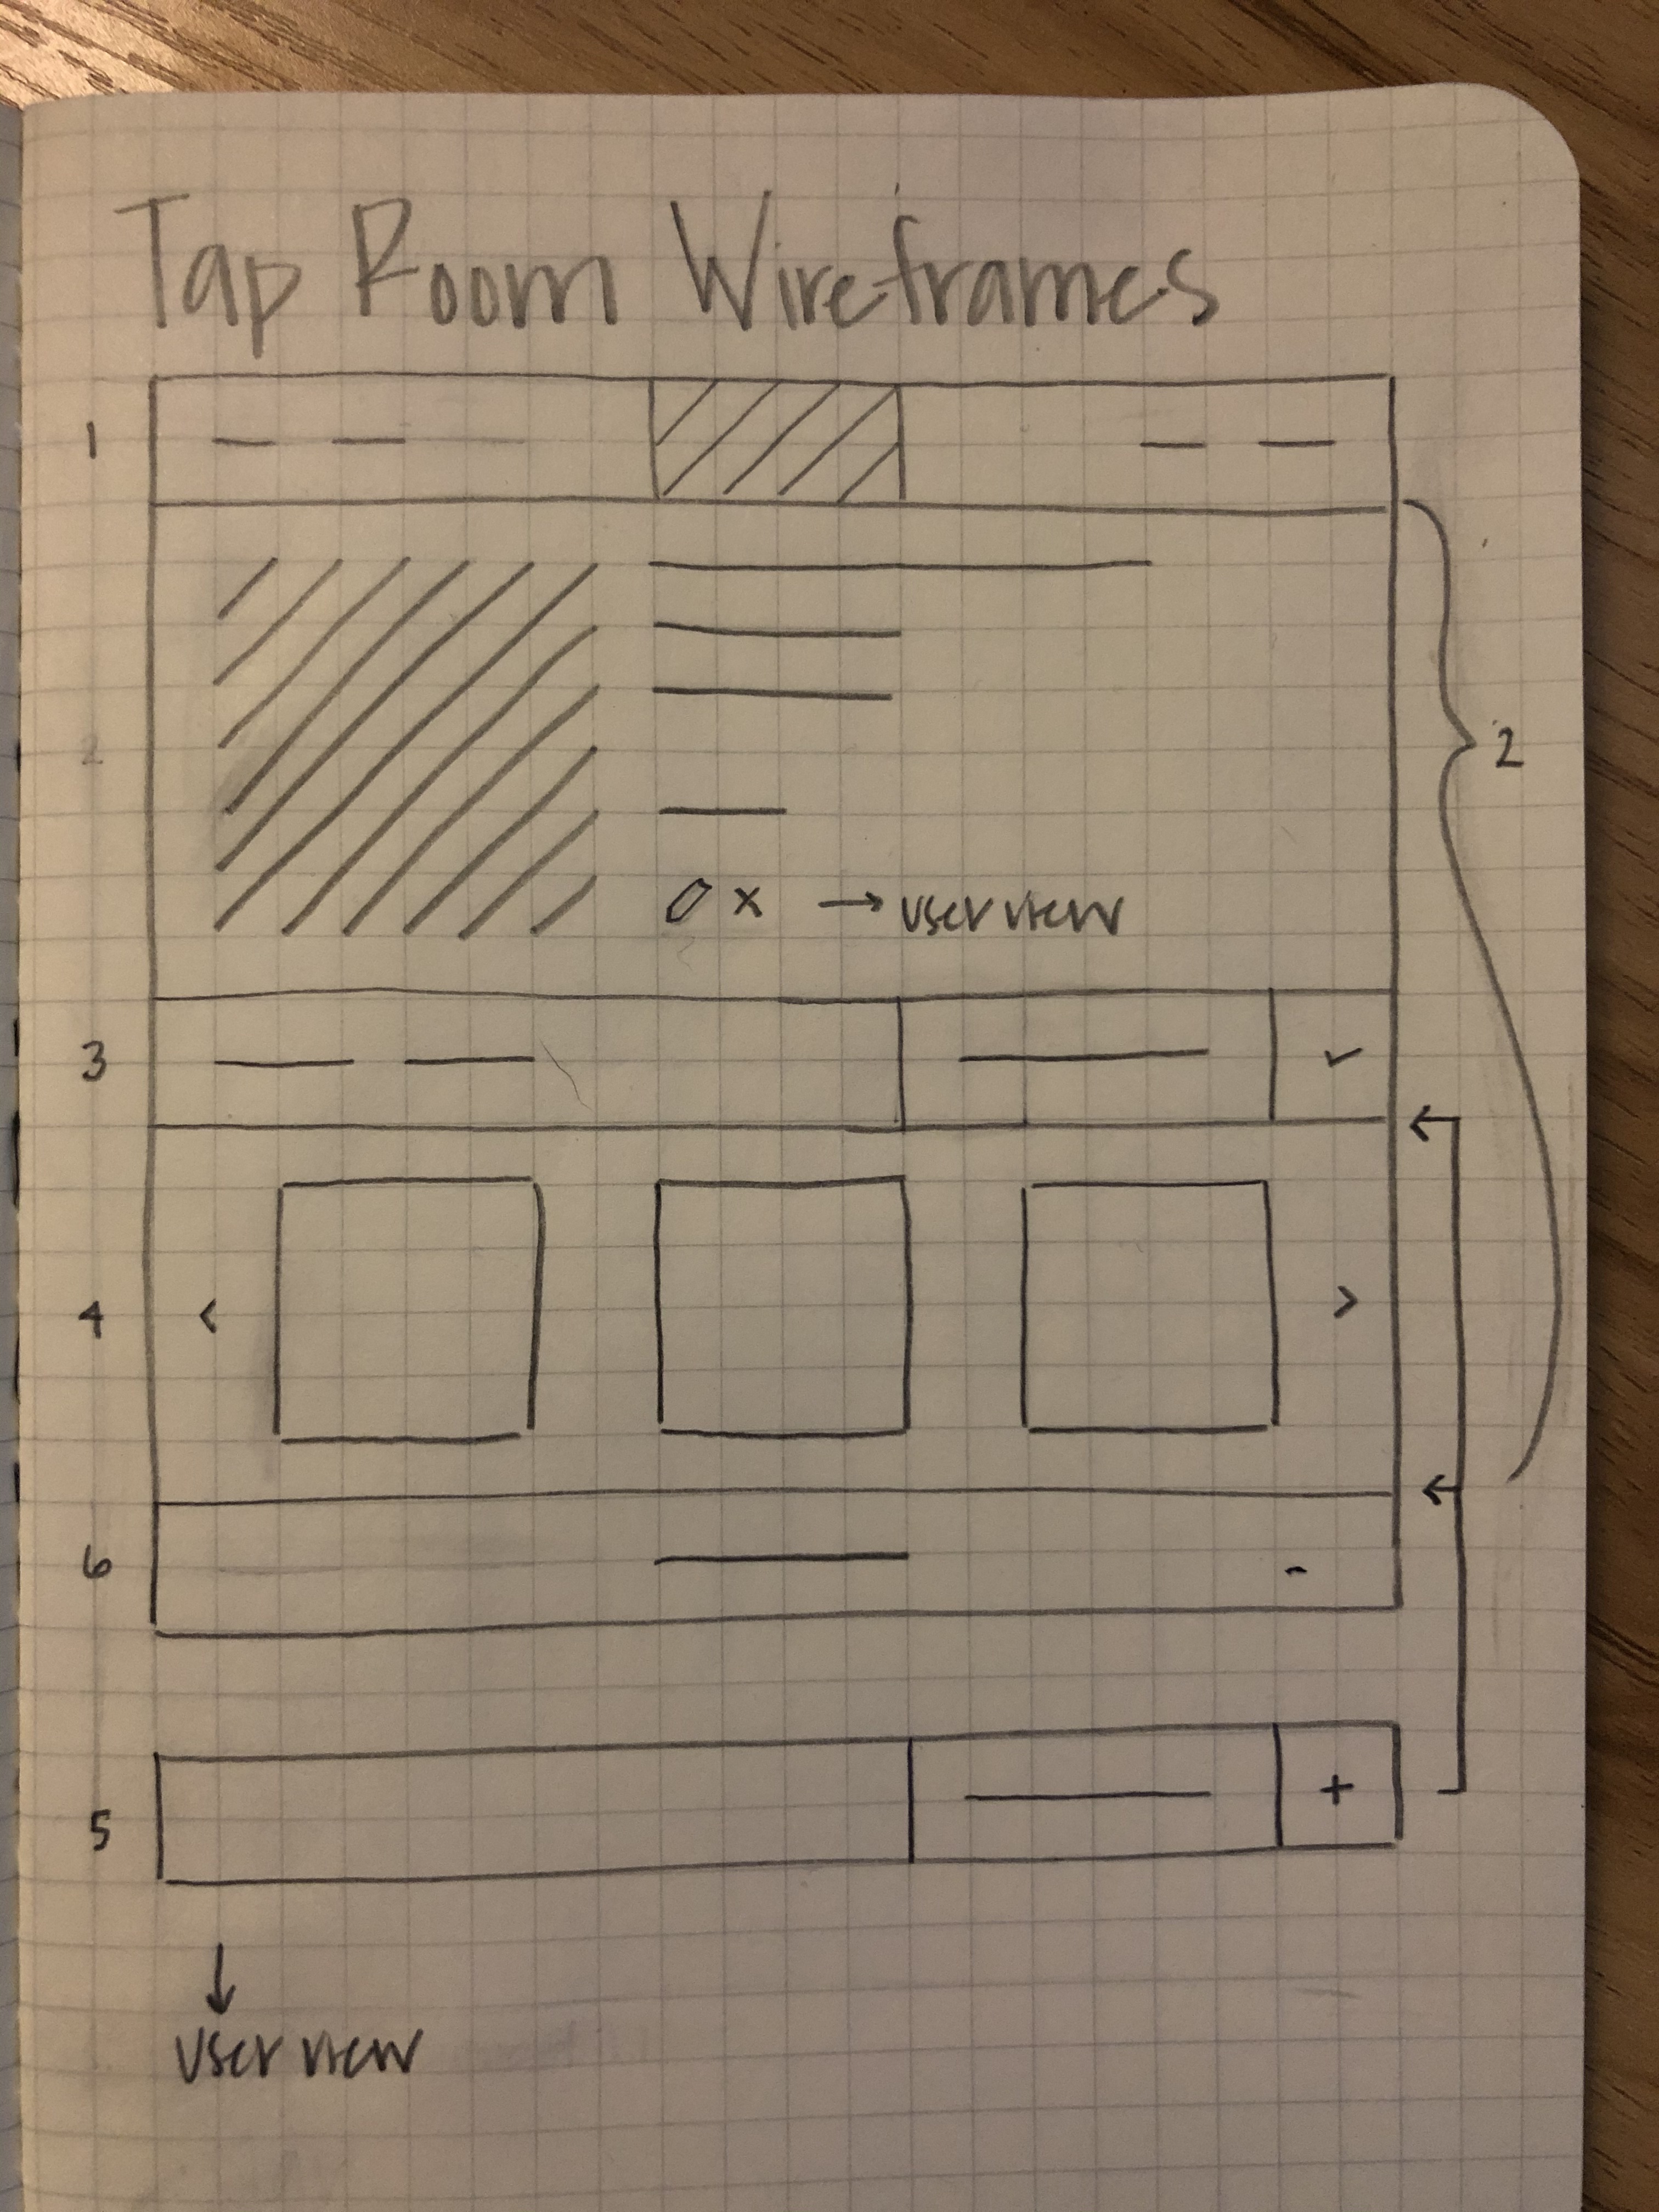 Tap Room Wireframes
1
2
2
x → user view
3
4
<
>
6
-
5
+
↓
user view